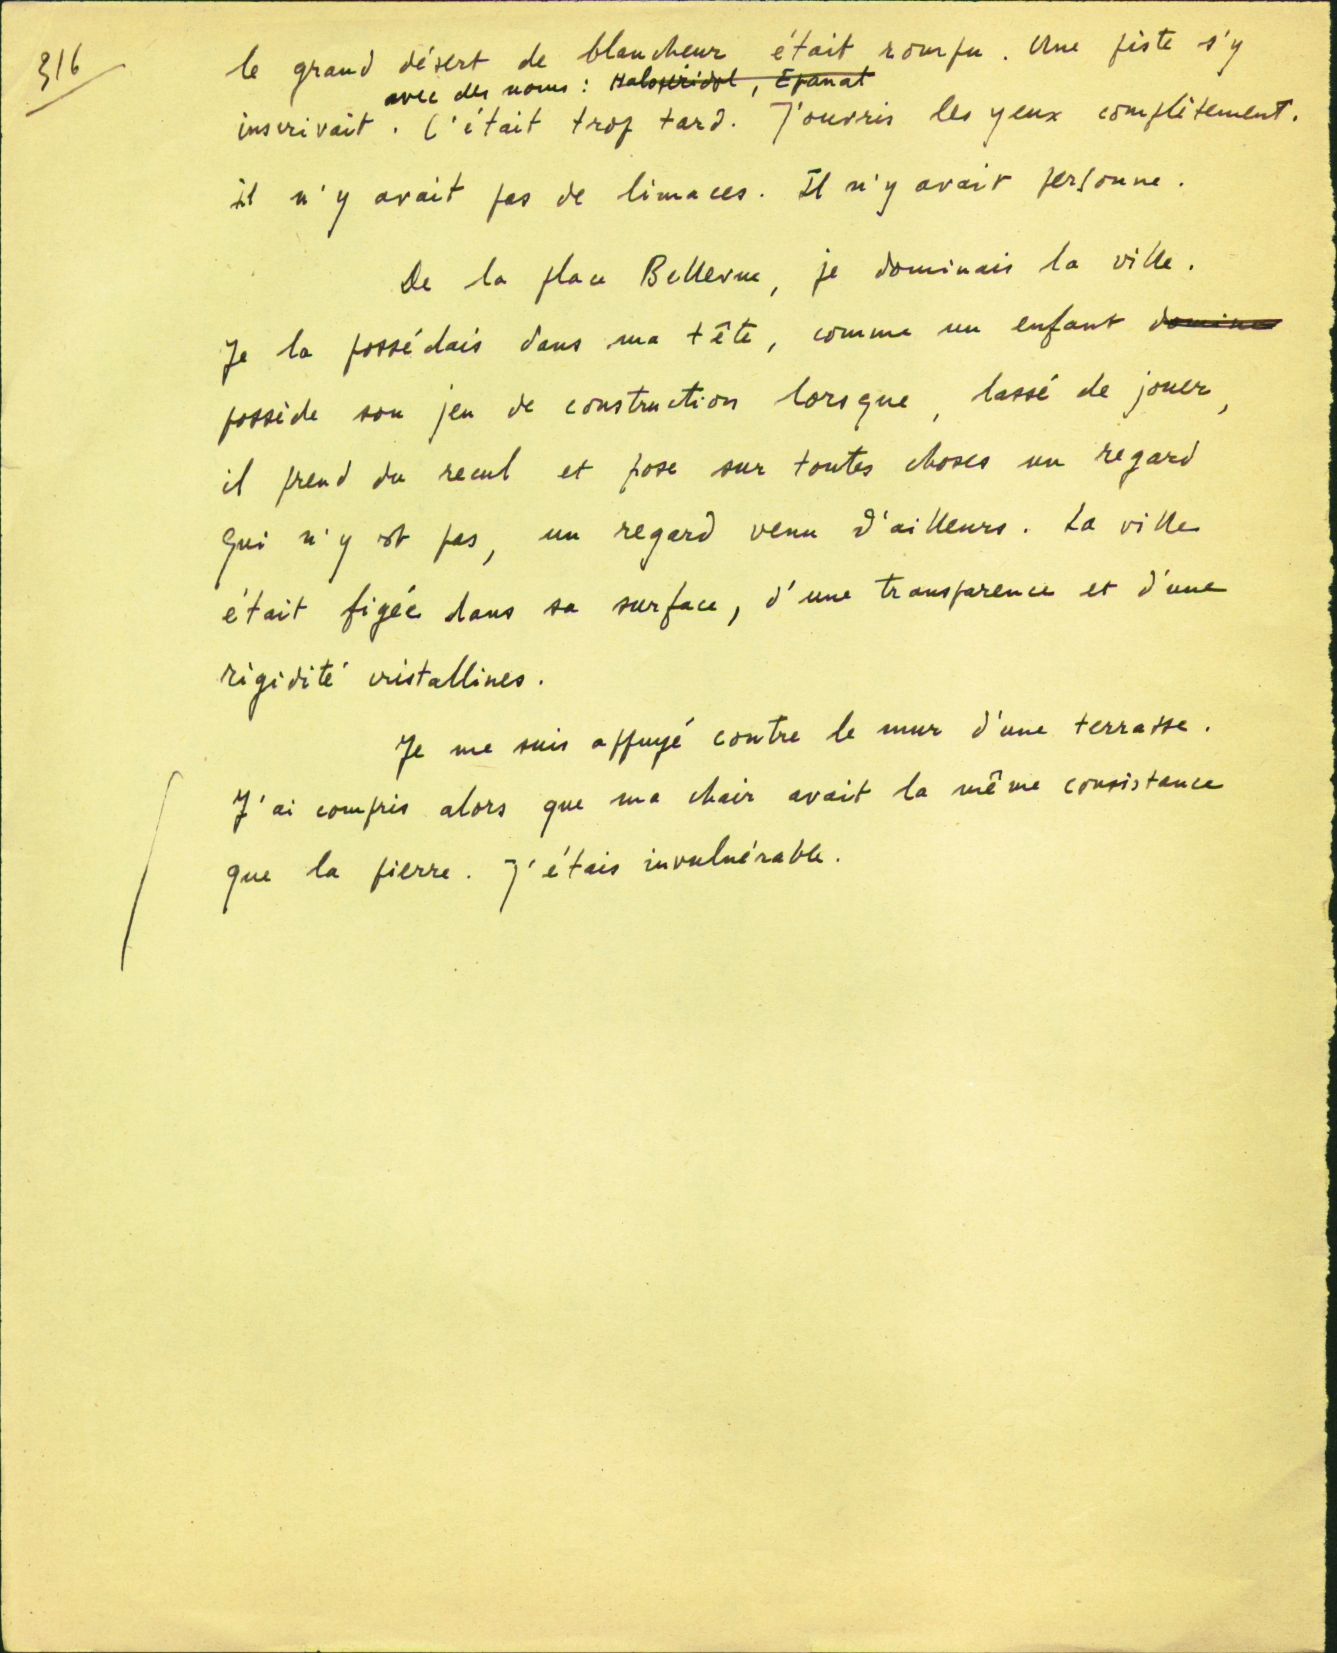 316
le grand désert de blancheur était rompu. Une piste s'y
avec des noms : Haloperidol, Epanat
inscrivait. C'était trop tard. J'ouvris les yeux complètement.
Il n'y avait pas de limaces. Il n'y avait personne.
De la place Bellevue, je dominais la ville.
Je la possédais dans ma tête, comme un enfant domine
possède son jeu de construction lorsque, lassé de jouer,
il prend du recul et pose sur toutes choses un regard
qui n'y est pas, un regard venu d'ailleurs. La ville
était figée dans sa surface, d'une transparence et d'une
rigidité cristallines.
Je me suis appuyé contre le mur d'une terrasse.
J'ai compris alors que ma chair avait la même consistance
que la pierre. J'étais invulnérable.